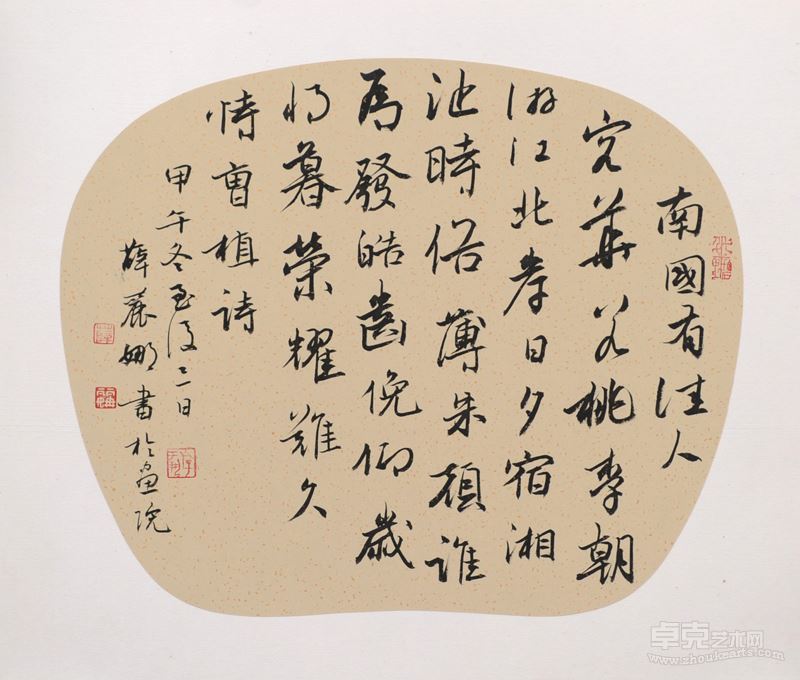 南國有佳人
容華若桃李朝
游江北岸日夕宿湘
沚時俗薄朱顏誰
為發皓齒俛仰歲
將暮榮耀難久
恃曹植詩
甲午冬至後三日
薛麗娜書於畫院
卓克艺术网
www.zhoukearts.com